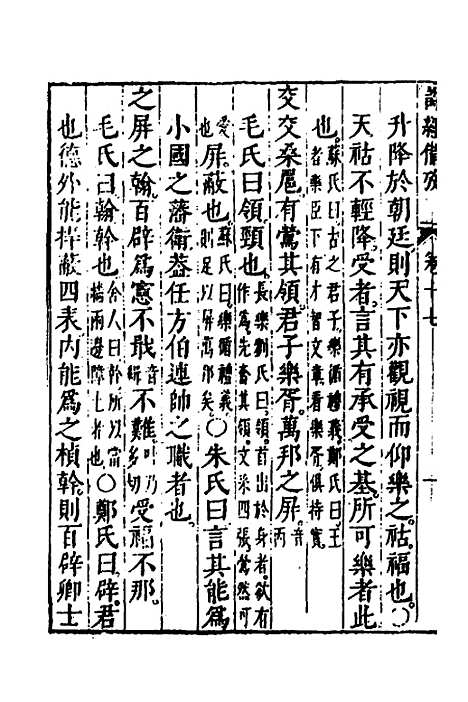 詩經備攷 卷十七
升降於朝廷則天下亦觀視而仰樂之祜福也○
天祜不輕降受者言其有承受之基所可樂者此
也蘇氏曰古之君子樂循禮義鄭氏曰王者樂臣下有才智文章
交交桑扈有鶯其領君子樂胥萬邦之屏音丙
毛氏曰領頸也長樂劉氏曰領首出於身者欲有作為先奮其領文采四張鶯然可
愛也屏蔽也蘇氏曰樂循禮義則足以屏萬邦矣○朱氏曰言其能為
小國之藩衛蓋任方伯連帥之職者也
之屏之翰百辟為憲不戢不難受福不那
毛氏曰翰幹也舍人曰幹所以當墻兩邊障土者也○鄭氏曰辟君
也德外能捍蔽四表內能為之楨幹則百辟卿士